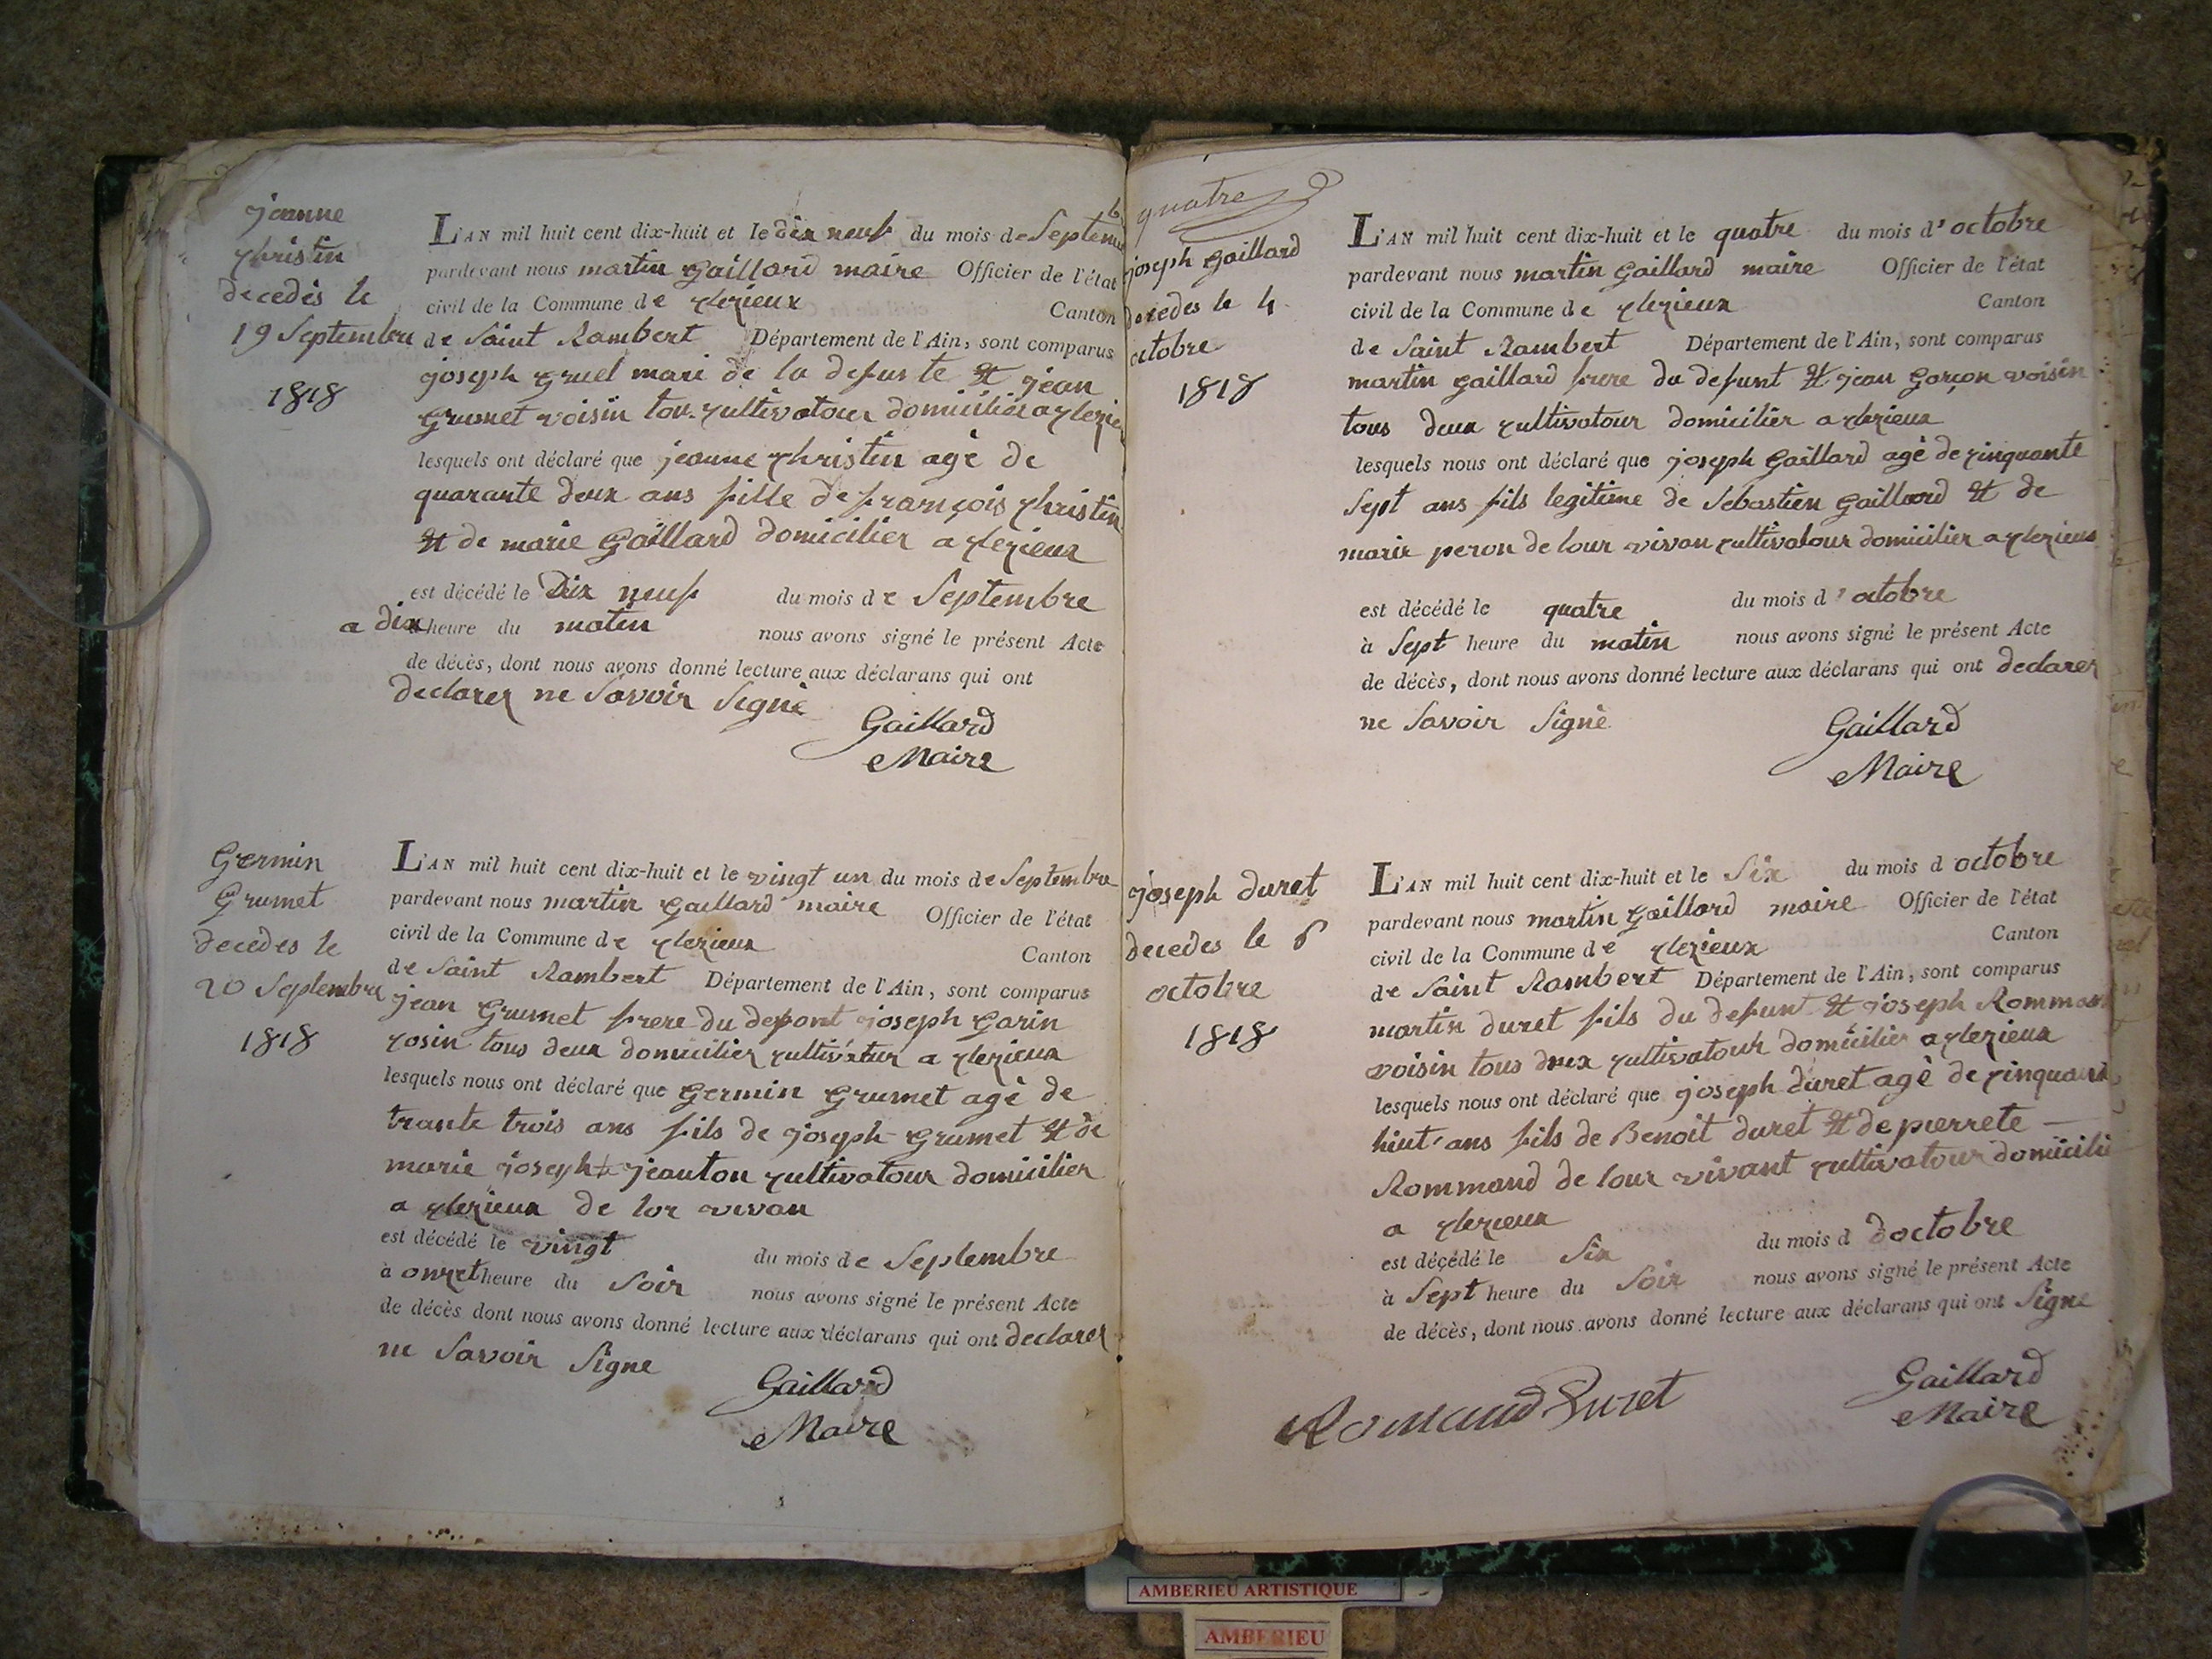 jeanne
christin
decedès le
19 Septembre
1818
L'AN mil huit cent dix-huit et le dix neuf du mois de Septem
pardevant nous martin gaillard maire Officier de l'état
civil de la Commune de clezieux
Canton
de Saint Rambert Département de l'Ain, sont comparus
joseph gruel mari de la defunte et jean
grumet voisin tou cultivatour domicilier a clezieu
lesquels ont déclaré que jeanne christin agè de
quarante deux ans fille de françois christin
et de marie gaillard domicilier a clezieux
est décédé le Dix neuf du mois de Septembre
a dix heure du matin nous avons signé le présent Acte
de décès, dont nous avons donné lecture aux déclarans qui ont
declarer ne Savoir Signè
Gaillard
Maire
Germin
Grumet
decèdes le
20 Septembre
1818
L'AN mil huit cent dix-huit et le vingt un du mois de Septembre
pardevant nous martin gaillard maire Officier de l'état
civil de la Commune de clezieux
Canton
de Saint Rambert Département de l'Ain, sont comparus
jean Grumet frere du defont joseph Garin
vosin tous deux domicilier cultivatur a clezieux
lesquels nous ont déclaré que Germin Grumet agè de
trante trois ans fils de joseph Grumet et de
marie joseph jeanton cultivatour domicilier
a clezieux de lor vivan
est décédé le vingt du mois de Septembre
à onzet heure du Soir nous avons signé le présent Acte
de décès dont nous avons donné lecture aux déclarans qui ont declarer
ne Savoir Signe
Gaillard
Maire
quatre
joseph gaillard
decedes le 4
octobre
1818
L'AN mil huit cent dix-huit et le quatre du mois d'octobre
pardevant nous martin gaillard maire Officier de l'état
civil de la Commune de clezieux
Canton
de Saint Rambert Département de l'Ain, sont comparus
martin gaillard frere du defunt et jean Garçon voisin
tous deux cultivatour domicilier a clezieux
lesquels nous ont déclaré que joseph Gaillard agè de cinquante
Sept ans fils legitime de Sebastien gaillard et de
marie peron de lour vivan cultivatour domicilier a clezieux
est décédé le quatre du mois d'octobre
à Sept heure du matin nous avons signé le présent Acte
de décès, dont nous avons donné lecture aux déclarans qui ont declarer
ne Savoir Signè
Gaillard
Maire
joseph duret
decedes le 6
octobre
1818
L'AN mil huit cent dix-huit et le Six du mois d octobre
pardevant nous martin gaillard maire Officier de l'état
civil de la Commune de clezieux
Canton
de Saint Rambert Département de l'Ain, sont comparus
martin duret fils du defunt et joseph Romman
voisin tous deux cultivatour domicilier a clezieux
lesquels nous ont déclaré que joseph duret agè de cinquante
huit ans fils de Benoit duret et de pierrete
Rommand de lour vivant cultivatour domicilie
a clezieux
est décédé le Six du mois d doctobre
à Sept heure du Soir nous avons signé le présent Acte
de décès, dont nous avons donné lecture aux déclarans qui ont Signe
Romand Duret
Gaillard
Maire
AMBERIEU ARTISTIQUE
AMBERIEU